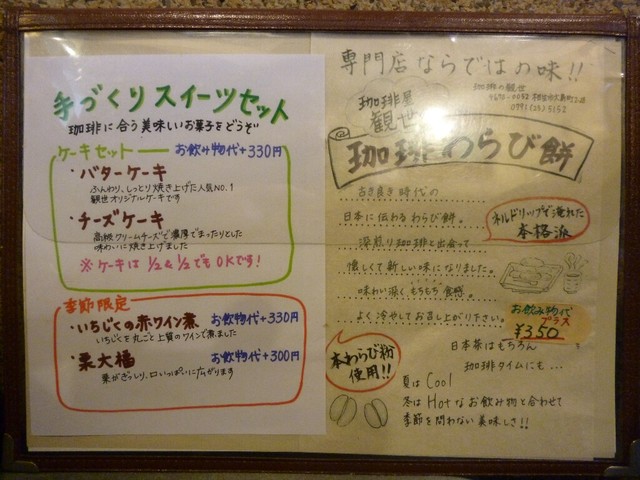 手づくりスイーツセット
珈琲に合う美味しいお菓子をどうぞ
ケーキセット ー お飲み物代+330円
・バターケーキ
ふんわり、しっとり焼き上げた人気NO.1
観世オリジナルケーキです
・チーズケーキ
高級クリームチーズで濃厚でまったりとした
味わいに焼き上げました
※ケーキは1/2&1/2でもOKです!
季節限定
・いちじくの赤ワイン煮 お飲物代+330円
いちじくを丸ごと上質のワインで煮ました
・栗大福 お飲物代+300円
栗がぎっしり、口いっぱいに広がります
専門店ならではの味!!
珈琲屋
観世
珈琲の観世
0791(22)5152
珈琲わらび餅
古き良き時代の
日本に伝わるわらび餅。
深煎り珈琲と出会って
懐しくて新しい味になりました。
味わい深くもちもち食感。
よく冷やしてお召し上がり下さい。
ネルドリップで淹れた
本格派
お飲み物代
プラス
¥350
本わらび粉
使用!!
日本茶はもちろん
珈琲タイムにも…
夏はCool
冬はHotなお飲み物と合わせて
季節を問わない美味しさ!!